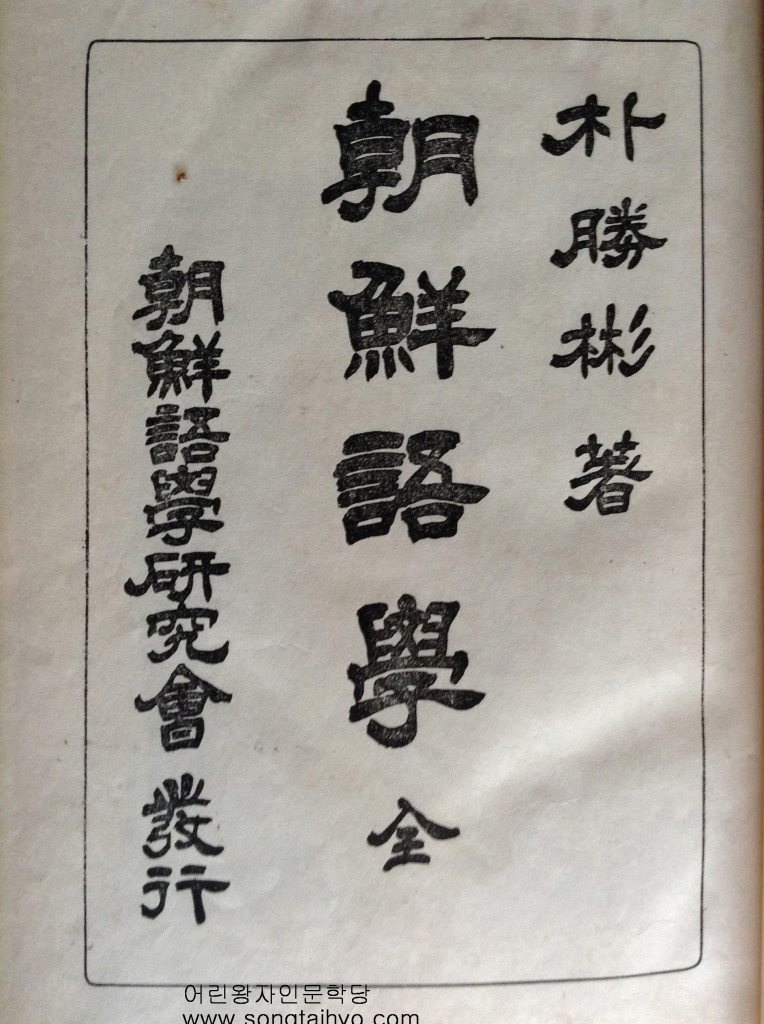 朴勝彬 著
朝鮮語學 全
朝鮮語學研究會 發行
어린왕자인문학당
www.songtaihyo.com